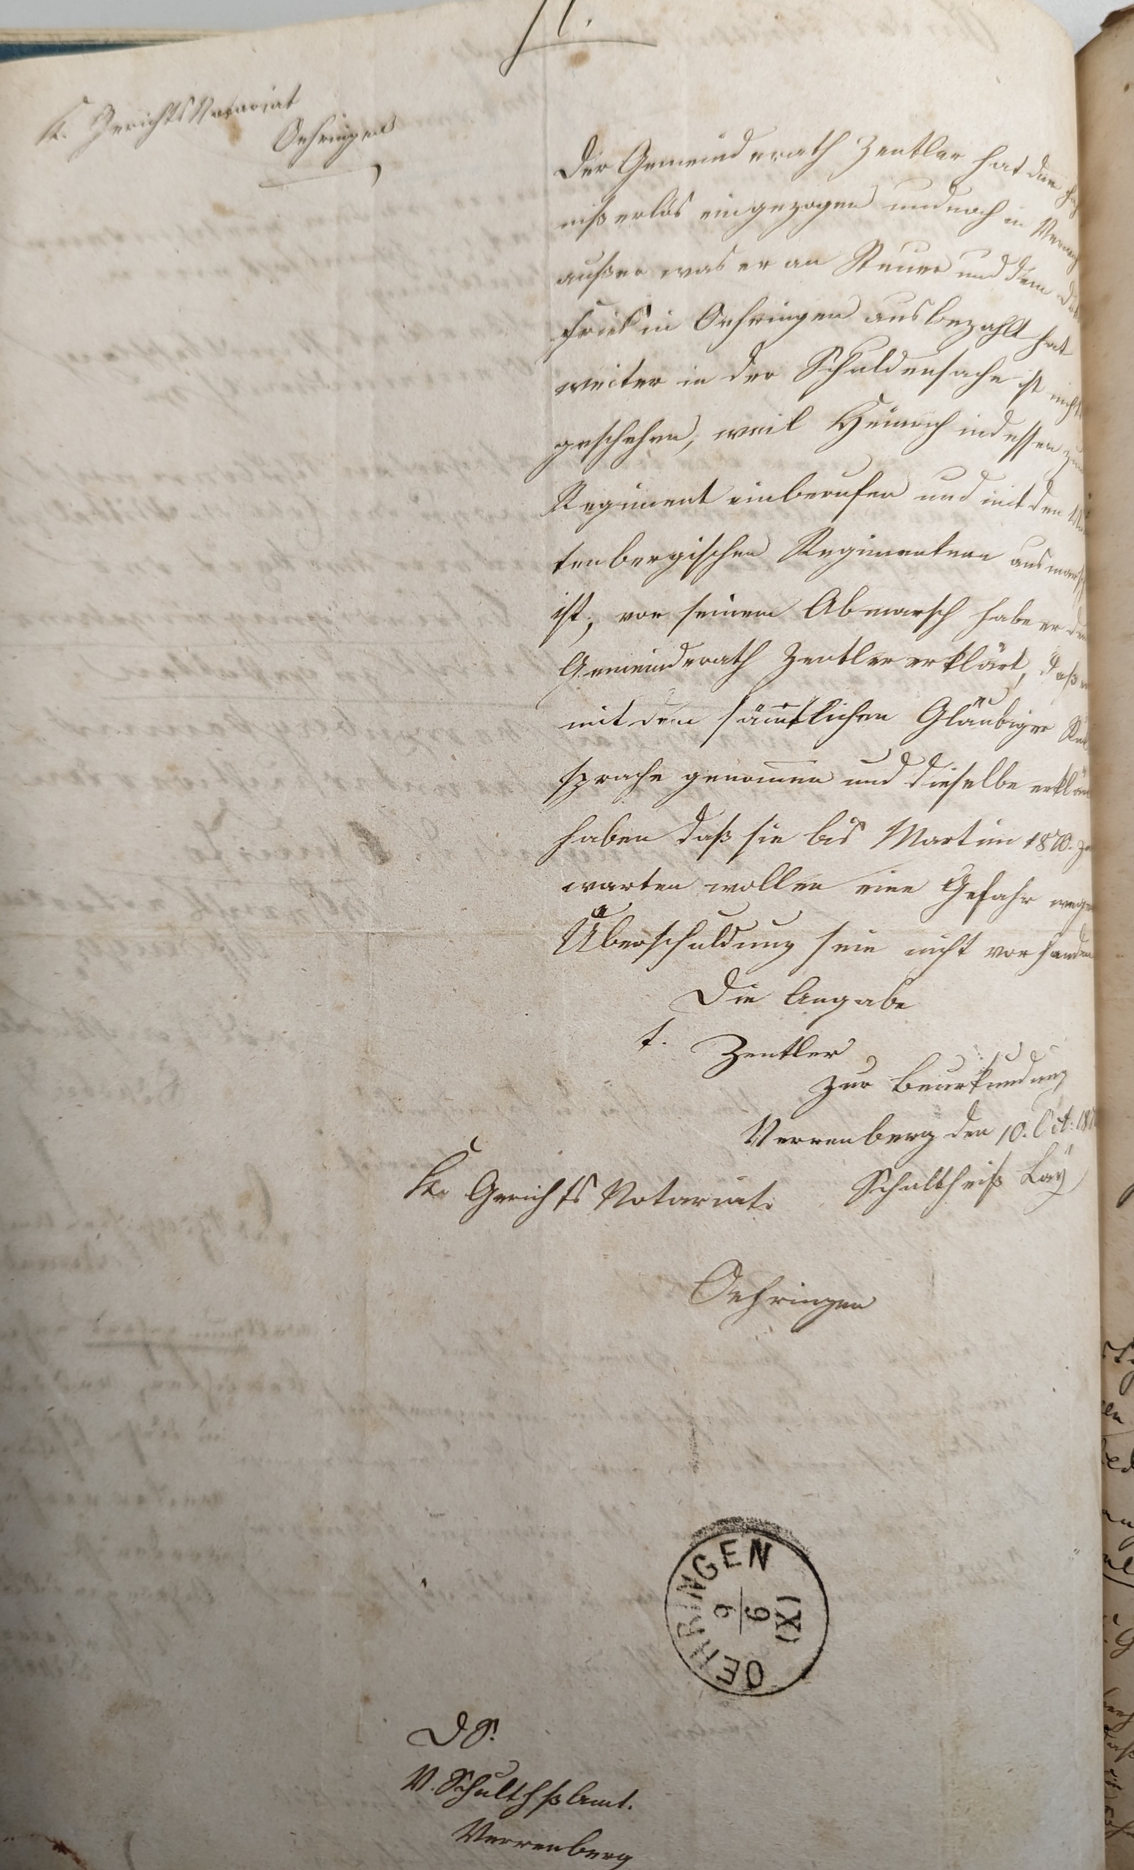 11.
K. GerichtsNotariat
Oehringen
Der Gemeinderath Zentler hat den
nißerlös eingezogen und noch in
außer was er an Steuer und dem
in Oehringen ausbezahlt hat
weiter in der Schuldensache ist nichts
geschehen, weil Heinrich indessen zum
Regiment einberufen und mit den
tenbergischen Regimentern
ist, vor seinem Abmarsch habe er
Gemeinderath Zentler erklärt, daß
mit den sämtlichen Gläubiger
sprache genommen und dieselbe
haben daß sie bis Martini 1870.
warten wollen eine Gefahr wegen
Überschuldung seie nicht vorhanden
Die Angabe
t. Zentler
Zur Beurkundung
Verrenberg den 10. Oct.
Schultheiß Lay
K. Gerichts Notariat.
Oehringen
OEHRINGEN
6
9
(X)
D. S.
V. Schulthßamt.
Verrenberg